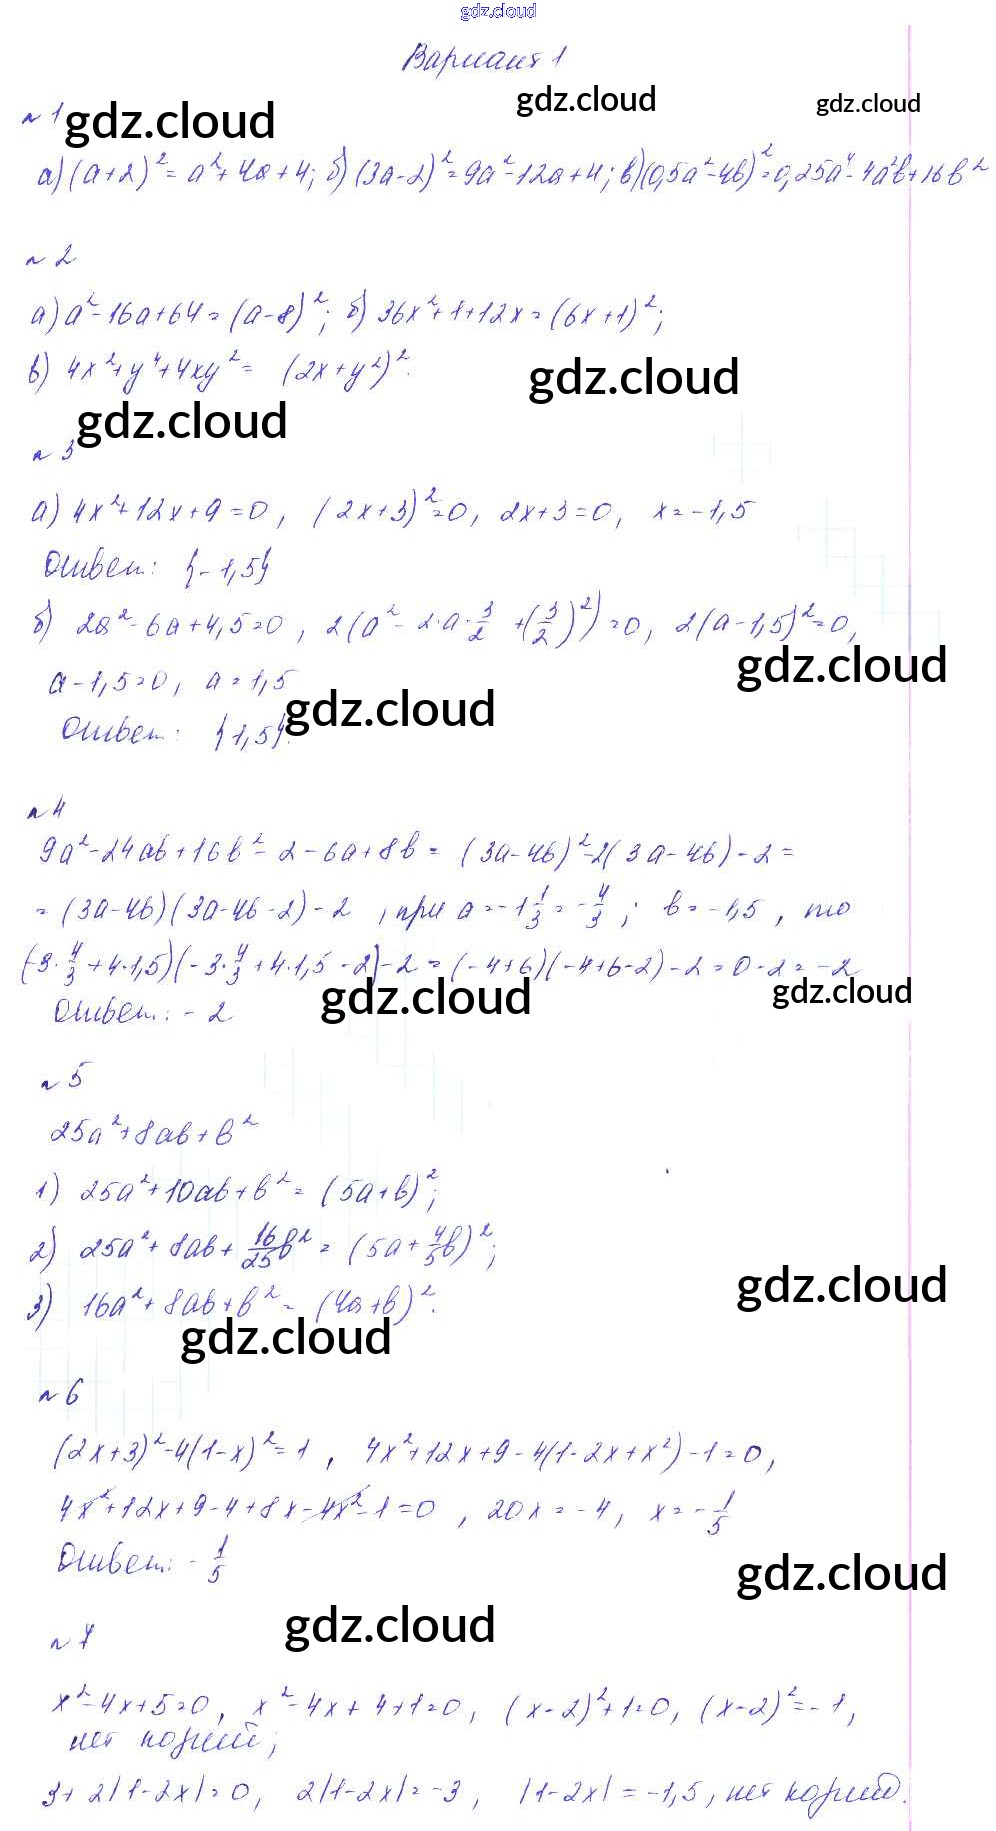 gdz.cloud
Вариант 1
gdz.cloud
gdz.cloud
№1 gdz.cloud
а) (a+2)² = a²+4a+4; б) (3a-2)² = 9a²-12a+4; в) (0,5a²-4b)² = 0,25a⁴-4a²b+16b²
№2
а) a²-16a+64 = (a-8)²; б) 36x²+1+12x = (6x+1)²;
в) 4x²+y⁴+4xy² = (2x+y²)².
gdz.cloud
gdz.cloud
№3
а) 4x²+12x+9=0, (2x+3)²=0, 2x+3=0, x=-1,5
Ответ: {-1,5}
б) 2a²-6a+4,5=0, 2(a²-2·a·3/2+(3/2)²)=0, 2(a-1,5)²=0,
gdz.cloud
a-1,5=0, a=1,5
gdz.cloud
Ответ: {1,5}.
№4
9a²-24ab+16b²-2-6a+8b = (3a-4b)²-2(3a-4b)-2 =
= (3a-4b)(3a-4b-2)-2, при a=-1 1/3=-4/3; b=-1,5, то
(-3·4/3+4·1,5)(-3·4/3+4·1,5-2)-2 = (-4+6)(-4+6-2)-2=0-2=-2
gdz.cloud
gdz.cloud
Ответ: -2
№5
25a²+8ab+b²
1) 25a²+10ab+b² = (5a+b)²;
2) 25a²+8ab+16/25b² = (5a+4/5b)²;
gdz.cloud
3) 16a²+8ab+b² = (4a+b)².
gdz.cloud
№6
(2x+3)²-4(1-x)²=1, 4x²+12x+9-4(1-2x+x²)-1=0,
4x²+12x+9-4+8x-4x²-1=0, 20x=-4, x=-1/5
Ответ: -1/5
gdz.cloud
gdz.cloud
№7
x²-4x+5=0, x²-4x+4+1=0, (x-2)²+1=0, (x-2)²=-1,
нет корней;
3+2|1-2x|=0, 2|1-2x|=-3, |1-2x|=-1,5, нет корней.